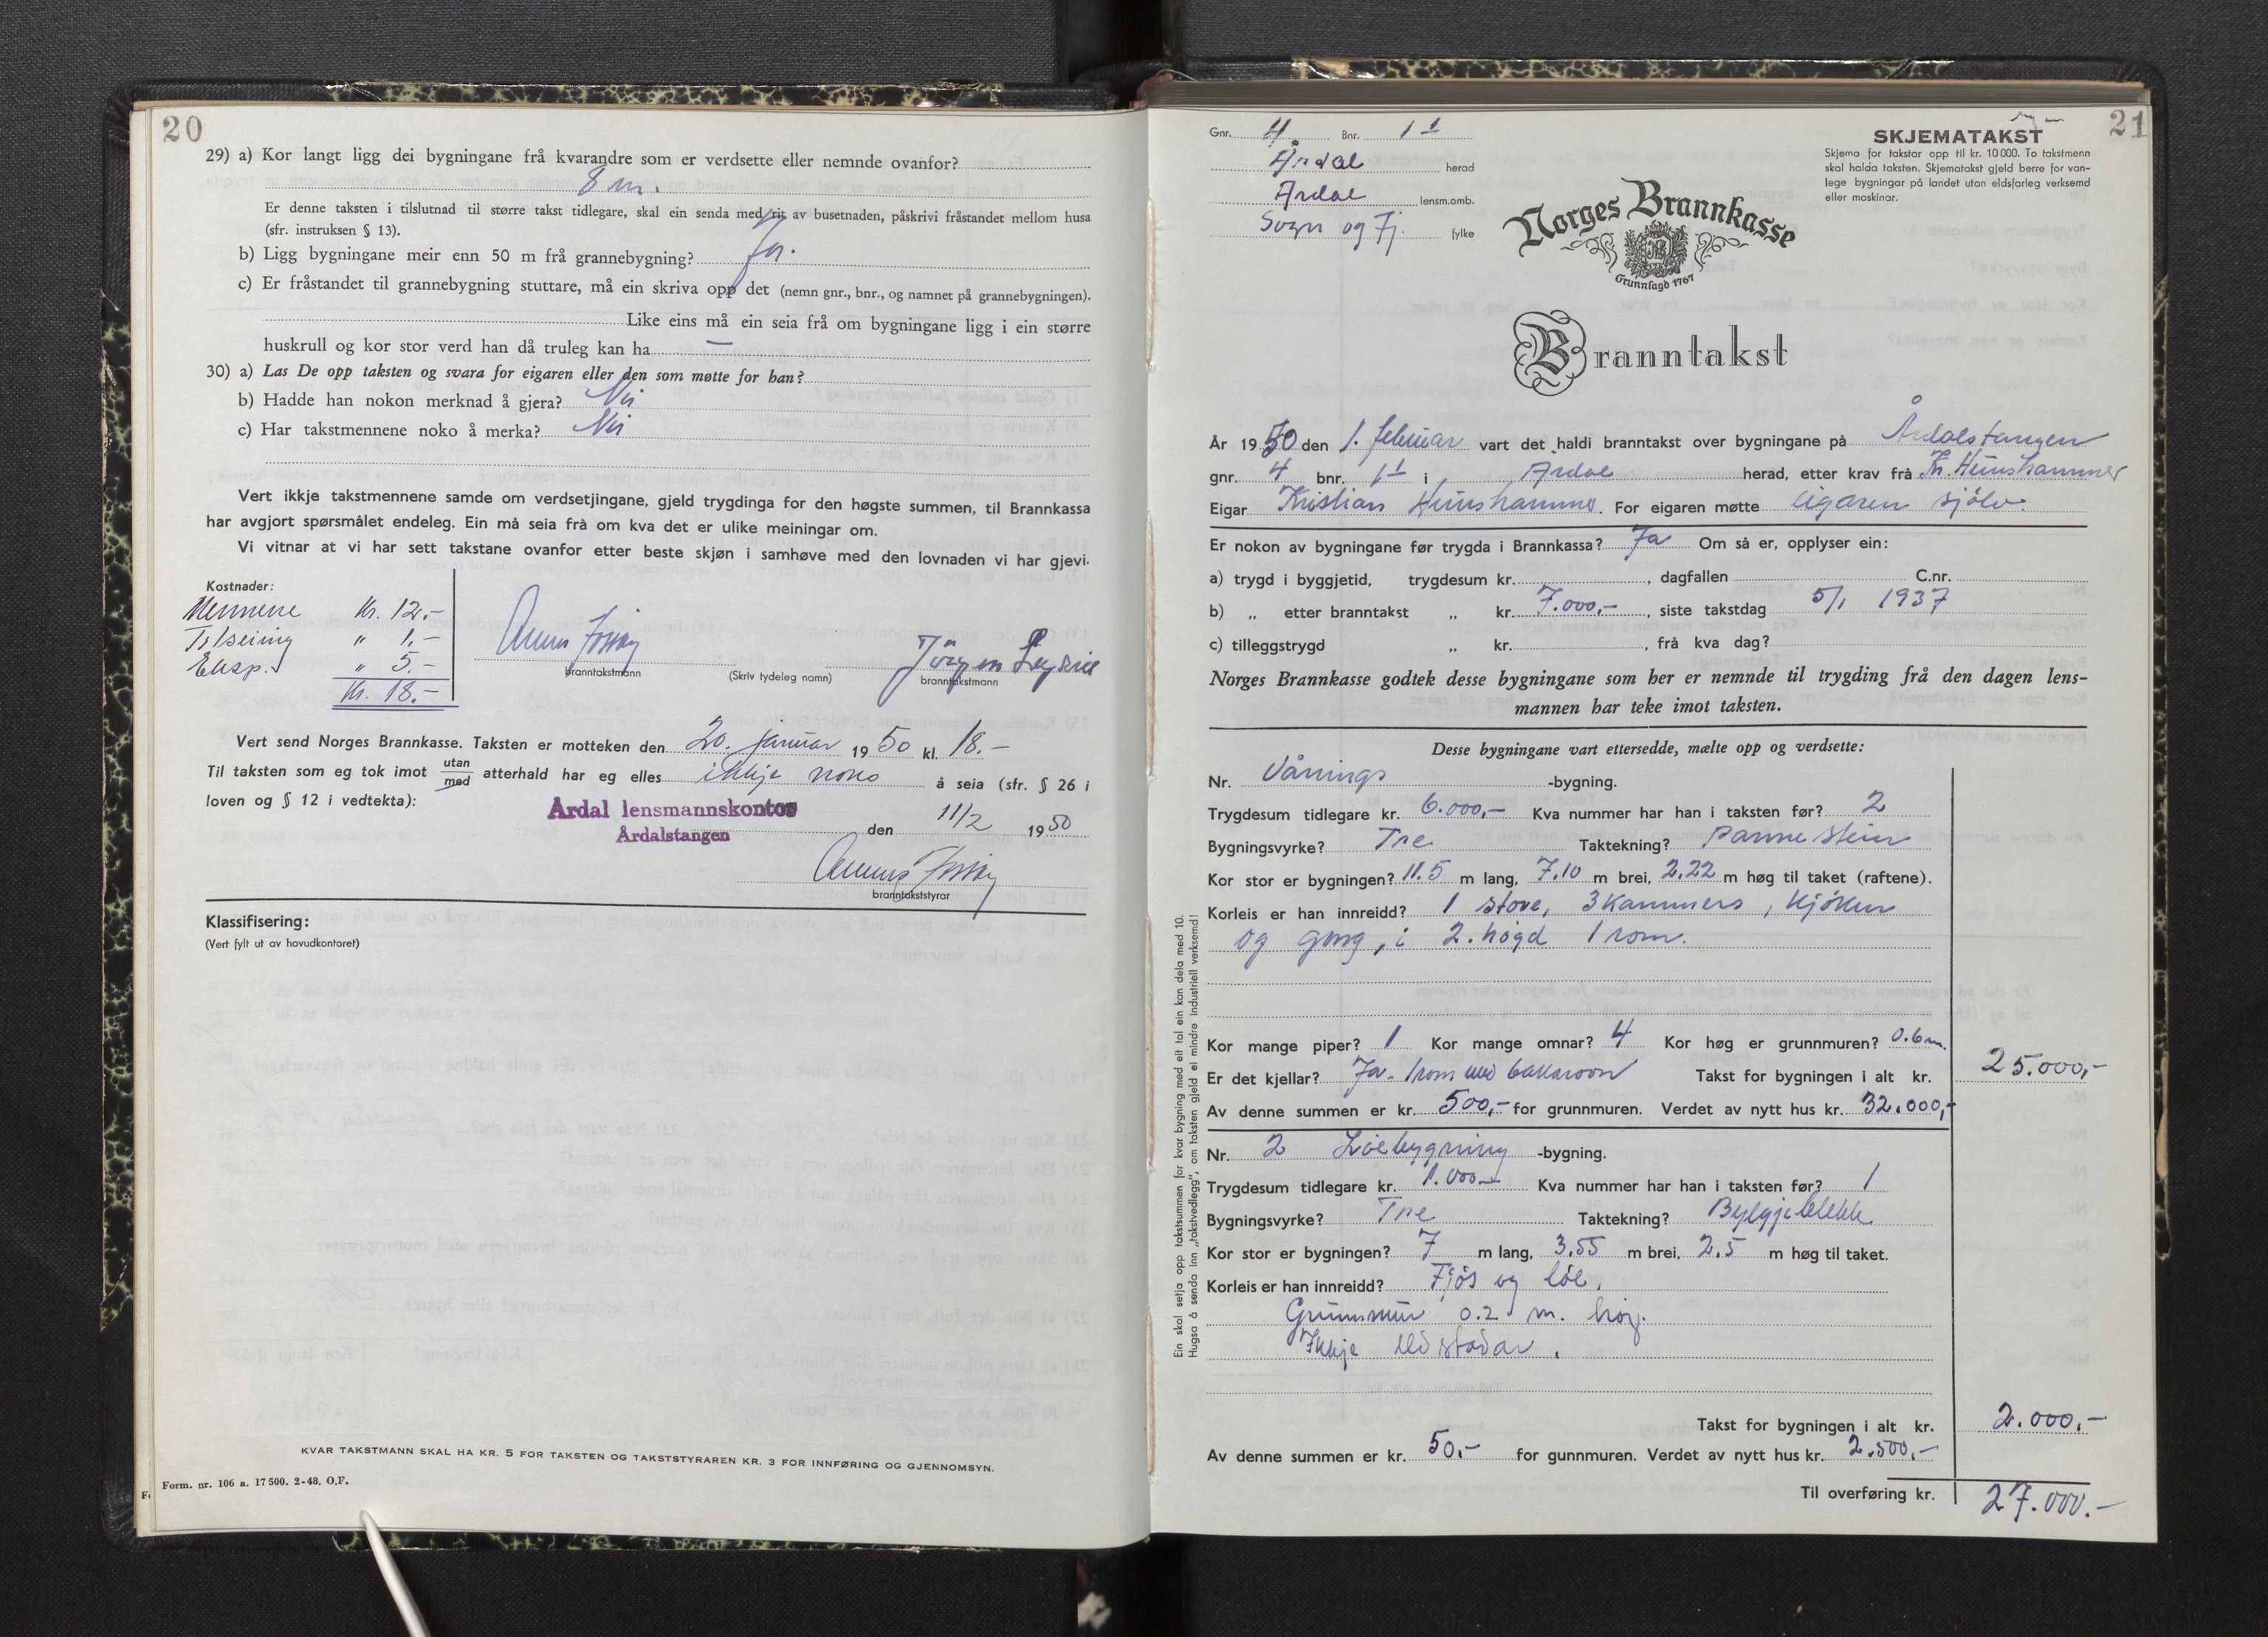 20
29) a) Kor langt ligg dei bygningane frå kvarandre som er verdsette eller nemnde ovanfor?
8 m.
Er denne taksten i tilslutnad til større takst tidlegare, skal ein senda med rit av busetnaden, påskrivi fråstandet mellom husa
(sfr. instruksen § 13).
b) Ligg bygningane meir enn 50 m frå grannebygning? Ja.
c) Er fråstandet til grannebygning stuttare, må ein skriva opp det (nemn gnr., bnr., og namnet på grannebygningen).
Like eins må ein seia frå om bygningane ligg i ein større
huskrull og kor stor verd han då truleg kan ha —
30) a) Las De opp taksten og svara for eigaren eller den som møtte for han?
b) Hadde han nokon merknad å gjera? Nei
c) Har takstmennene noko å merka? Nei
Vert ikkje takstmennene samde om verdsetjingane, gjeld trygdinga for den høgste summen, til Brannkassa
har avgjort spørsmålet endeleg. Ein må seia frå om kva det er ulike meiningar om.
Vi vitnar at vi har sett takstane ovanfor etter beste skjøn i samhøve med den lovnaden vi har gjevi.
Kostnader:
Mennene Kr. 12.-
Tilseing " 1.-
Eksp. " 5.-
Kr. 18.-
Jörgen
branntakstmann (Skriv tydeleg namn) branntakstmann
Vert send Norges Brannkasse. Taksten er motteken den 20. januar 1950 kl. 18.-
Til taksten som eg tok imot utan/med atterhald har eg elles ikkje noko å seia (sfr. § 26 i
loven og § 12 i vedtekta):
Årdal lensmannskontor
Årdalstangen
den 11/2 1950
branntakststyrar
Klassifisering:
(Vert fylt ut av hovudkontoret)
KVAR TAKSTMANN SKAL HA KR. 5 FOR TAKSTEN OG TAKSTSTYRAREN KR. 3 FOR INNFØRING OG GJENNOMSYN.
Form. nr. 106 a. 17 500. 2-48. O.F.
21
Gnr. 4 Bnr. 11
Årdal herad
Årdal lensm.omb.
Sogn og Fj. fylke
SKJEMATAKST
Skjema for takstar opp til kr. 10 000. To takstmenn
skal halda taksten. Skjematakst gjeld berre for van-
lege bygningar på landet utan eldsfarleg verksemd
eller maskinar.
Norges Brannkasse
Grunnlagd 1767
Branntakst
År 1950 den 1. februar vart det haldi branntakst over bygningane på Årdalstangen
gnr. 4 bnr. 11 i Årdal herad, etter krav frå Kr. Heimshammer
Eigar Kristian Heimshammer. For eigaren møtte eigaren sjølv.
Er nokon av bygningane før trygda i Brannkassa? Ja Om så er, opplyser ein:
a) trygd i byggjetid, trygdesum kr. , dagfallen C.nr.
b) „ etter branntakst „ kr. 7.000,- , siste takstdag 5/1 1937
c) tilleggstrygd „ kr. , frå kva dag?
Norges Brannkasse godtek desse bygningane som her er nemnde til trygding frå den dagen lens-
mannen har teke imot taksten.
Desse bygningane vart ettersedde, mælte opp og verdsette:
Nr. Vånings -bygning.
Trygdesum tidlegare kr. 6.000,- Kva nummer har han i taksten før? 2
Bygningsvyrke? Tre. Taktekning? Pannestein
Kor stor er bygningen? 11.5 m lang, 7.10 m brei, 2.22 m høg til taket (raftene).
Korleis er han innreidd? 1 stove, 3 kammers, kjøken
og gang, i 2. høgd 1 rom.
Kor mange piper? 1 Kor mange omnar? 4 Kor høg er grunnmuren? 0.6 m.
Er det kjellar? Ja. 1 rom med bakaromn Takst for bygningen i alt kr. 25.000,-
Av denne summen er kr. 500,- for grunnmuren. Verdet av nytt hus kr. 32.000,-
Nr. 2 Löebygning -bygning.
Trygdesum tidlegare kr. 1.000- Kva nummer har han i taksten før? 1
Bygningsvyrke? Tre Taktekning? Bylgjeblekk
Kor stor er bygningen? 7 m lang, 3.55 m brei, 2.5 m høg til taket.
Korleis er han innreidd? Fjös og löe.
Grunnmur 0.2 m. høg.
Ikkje eldstadar.
Takst for bygningen i alt kr. 2.000,-
Av denne summen er kr. 50.- for gunnmuren. Verdet av nytt hus kr. 2.500,-
Til overføring kr. 27.000.-
Ein skal setja opp takstsummen for kvar bygning med eit tal ein kan dela med 10.
Hugsa å senda inn „takstvedlegg", om taksten gjeld ei mindre industriell verksemd!